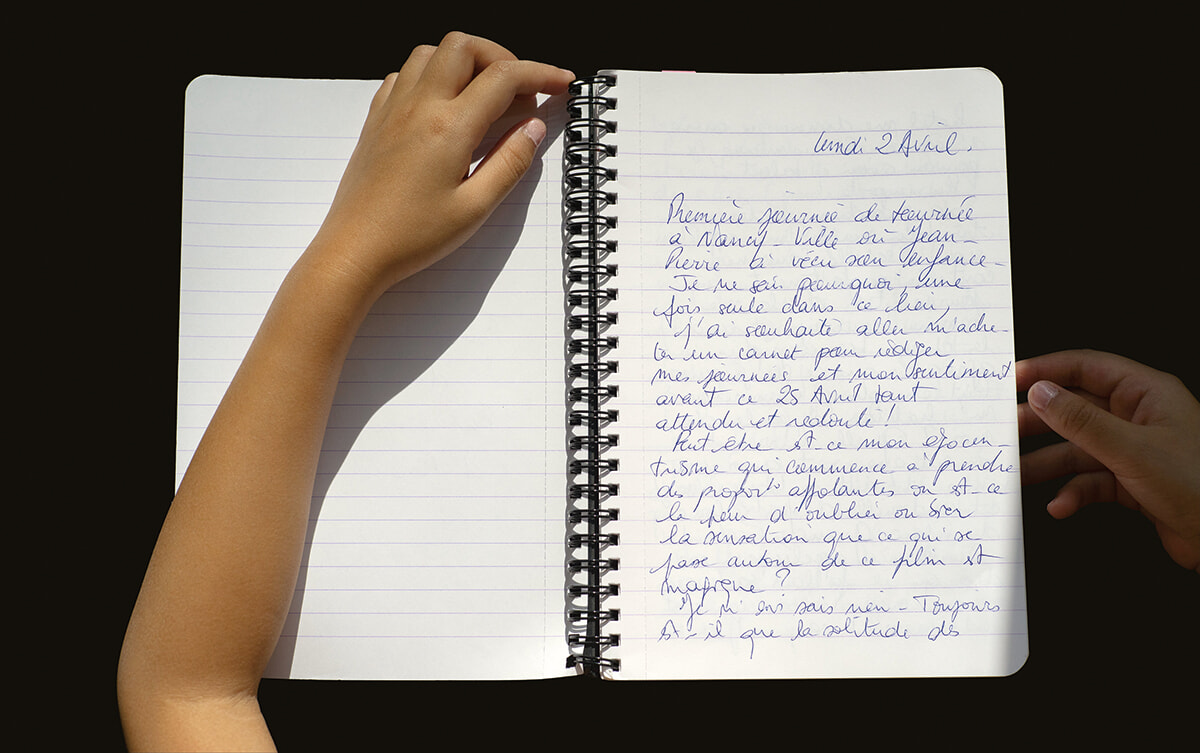 lundi 2 Avril.
Première journée de tournée
à Nancy - Ville où Jean-
Pierre a vécu son enfance -
Je ne sais pourquoi, une
fois seule dans ce lieu,
j'ai souhaité aller m'ache-
ter un carnet pour rédiger
mes journées et mon sentiment
avant ce 25 Avril tant
attendu et redouté !
Peut être est-ce mon égocen-
trisme qui commence à prendre
des propor° affolantes ou est-ce
la peur d'oublier ou bien
la sensation que ce qui se
passe autour de ce film est
magique ?
Je n'en sais rien - Toujours
est-il que la solitude des